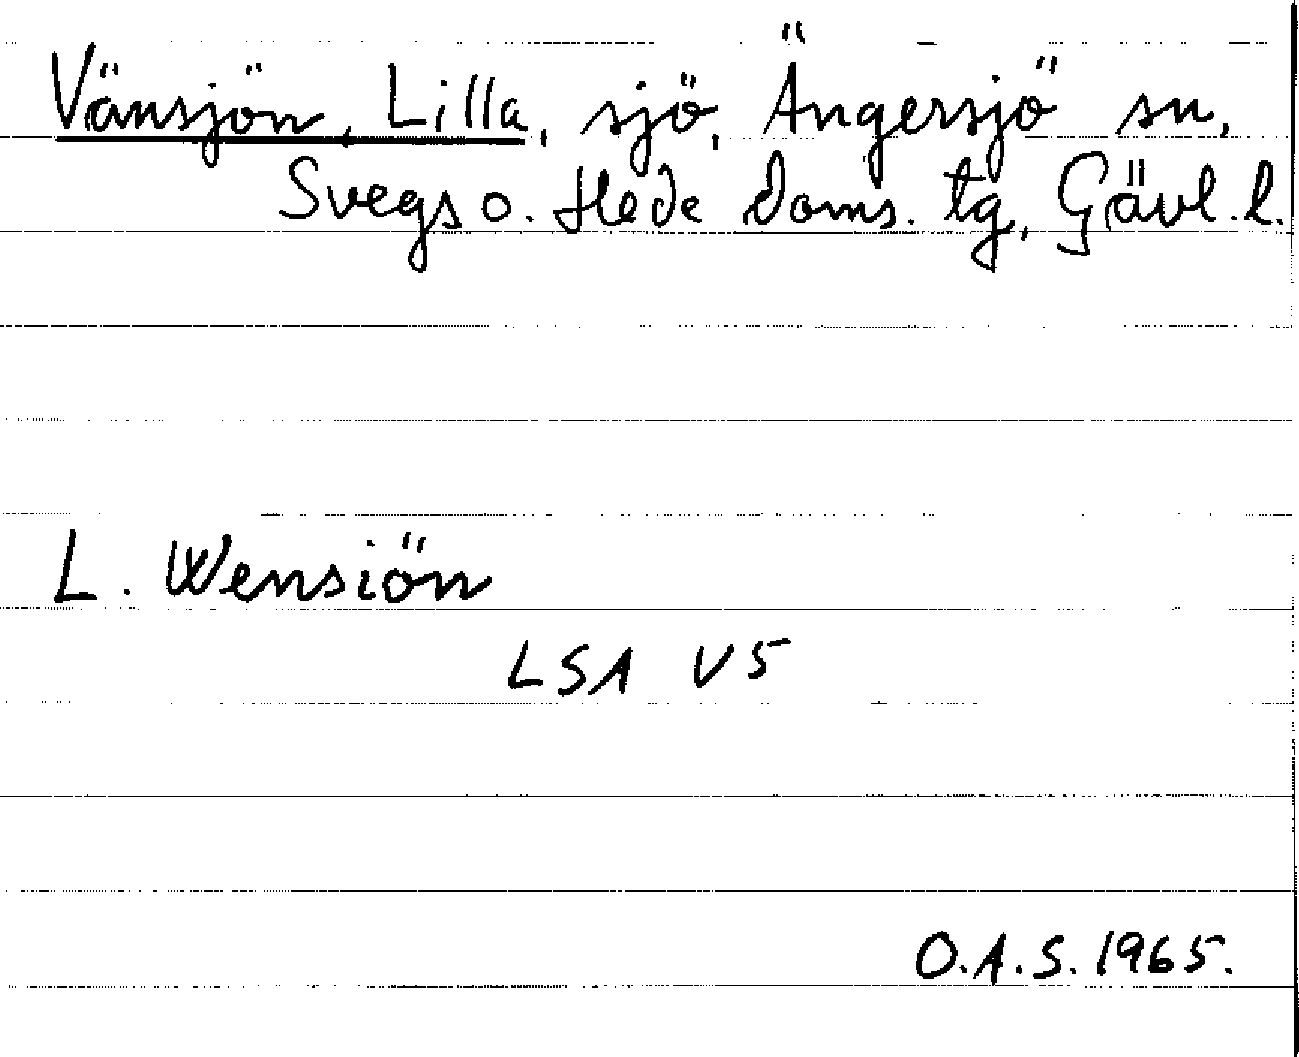 Vänsjön, Lilla, sjö, Ängersjö sn,
Svegs o. Hede doms. tg, Gävl. l.
L. Wensiön
LSA V5
O.A.S. 1965.